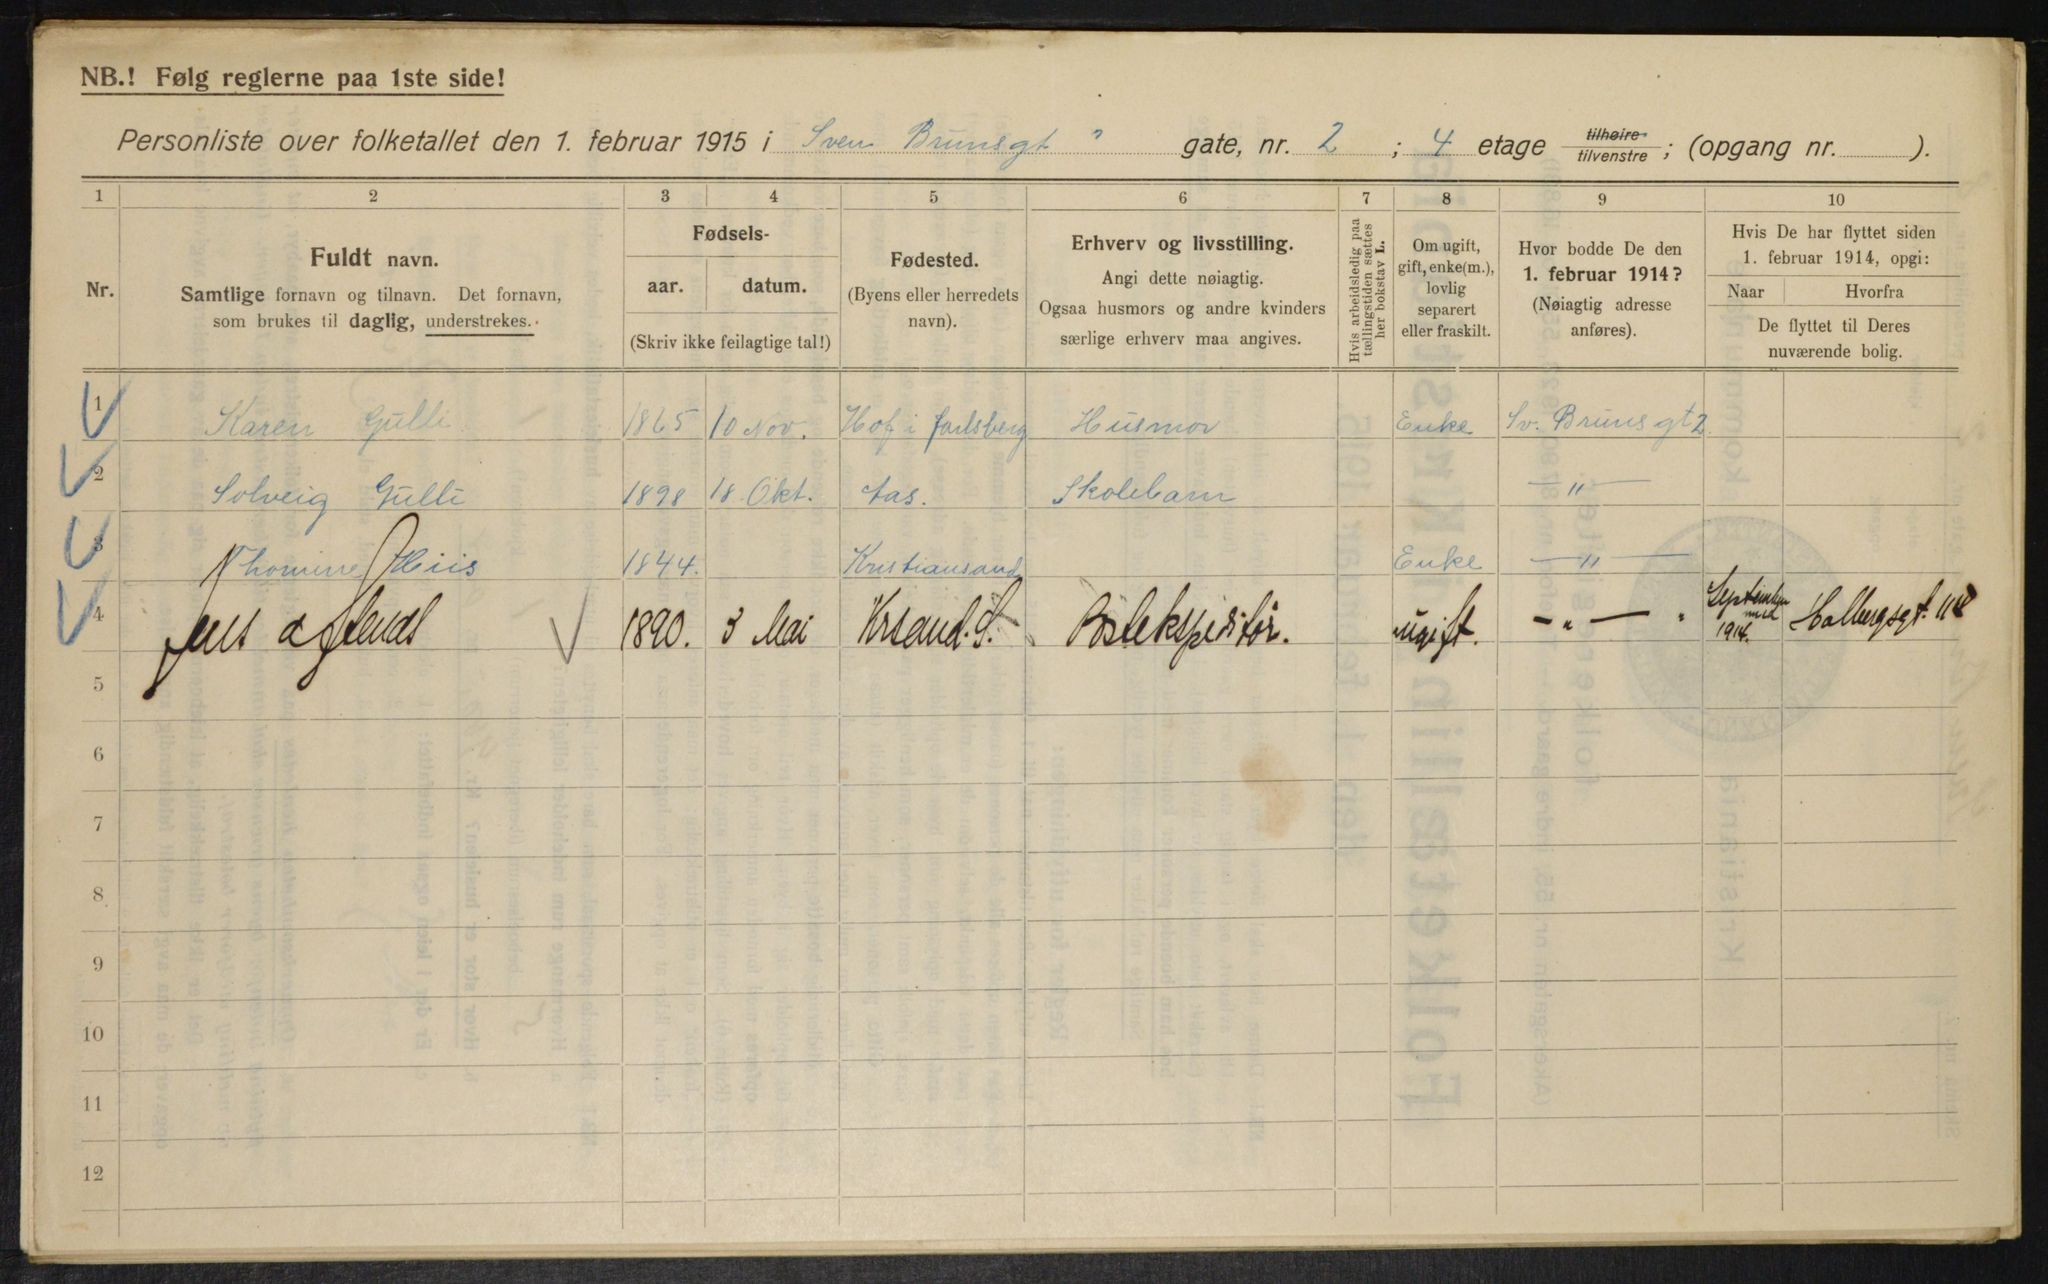 NB.! Følg reglerne paa 1ste side!
Personliste over folketallet den 1. februar 1915 i Sven Brunsgt " gate, nr. 2 ; 4 etage tilhøire / tilvenstre ; (opgang nr. ).
1 2 3 4 5 6 7 8 9 10
Nr.
Fuldt navn.
Samtlige fornavn og tilnavn. Det fornavn,
som brukes til daglig, understrekes.
Fødsels-
aar. datum.
(Skriv ikke feilagtige tal!)
Fødested.
(Byens eller herredets
navn).
Erhverv og livsstilling.
Angi dette nøiagtig.
Ogsaa husmors og andre kvinders
særlige erhverv maa angives.
Hvis arbeidsledig paa
tællingstiden sættes
her bokstav L.
Om ugift,
gift, enke(m.),
lovlig
separert
eller fraskilt.
Hvor bodde De den
1. februar 1914?
(Nøiagtig adresse
anføres).
Hvis De har flyttet siden
1. februar 1914, opgi:
Naar Hvorfra
De flyttet til Deres
nuværende bolig.
1 Karen Gulli 1865 10 Nov. Hof i Jarlsberg Husmor Enke Sv. Bruns gt 2
2 Solveig Gulli 1898 18 Okt. Aas. Skolebarn — " —
3 Thomine Hiis 1844. Kristiansand Enke — " —
4 Jens 1890. 3 Mai Krsand. S. Postekspeditør. ugift. — " — " September 1914. Holbergsgt.
5
6
7
8
9
10
11
12